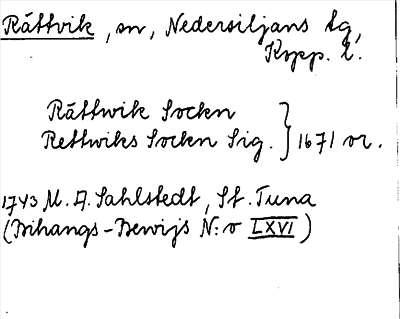 Rättvik, sn, Nedersiljans tg,
Kopp. l.
Rättwik Sockn
Rettwiks Sockn Sig. } 1671 or.
1743 M. A. Sahlstedt, St. Tuna
(Bihangs-Bewijs N:o LXVI)